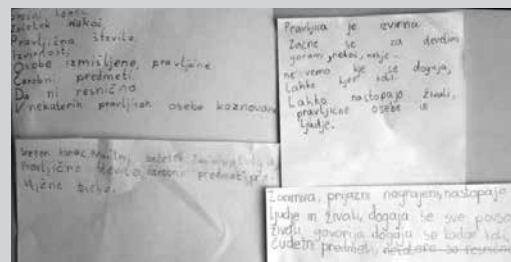 srečni konec
Začetek nekoč
Pravljična števila
Izvirnost,
Osebe izmišljene, pravljične
Čarobni predmeti.
Da ni resnično
V nekaterih pravljicah osebe kaznovane
Pravljica je izvirna
Začne se za devetimi
gorami, nekoč, nekje..
ne vemo kje se dogaja,
Lahko kjer koli.
Lahko nastopajo živali,
pravljične osebe in
ljudje.
Srečen konec
pravljične število, čarobni predmeti
Zanimiva, prijazni nagrajeni, nastopajo
ljudje in živali, dogaja se sve povsod
živali govorijo dogaja se kadar koli,
čudežni predmeti,